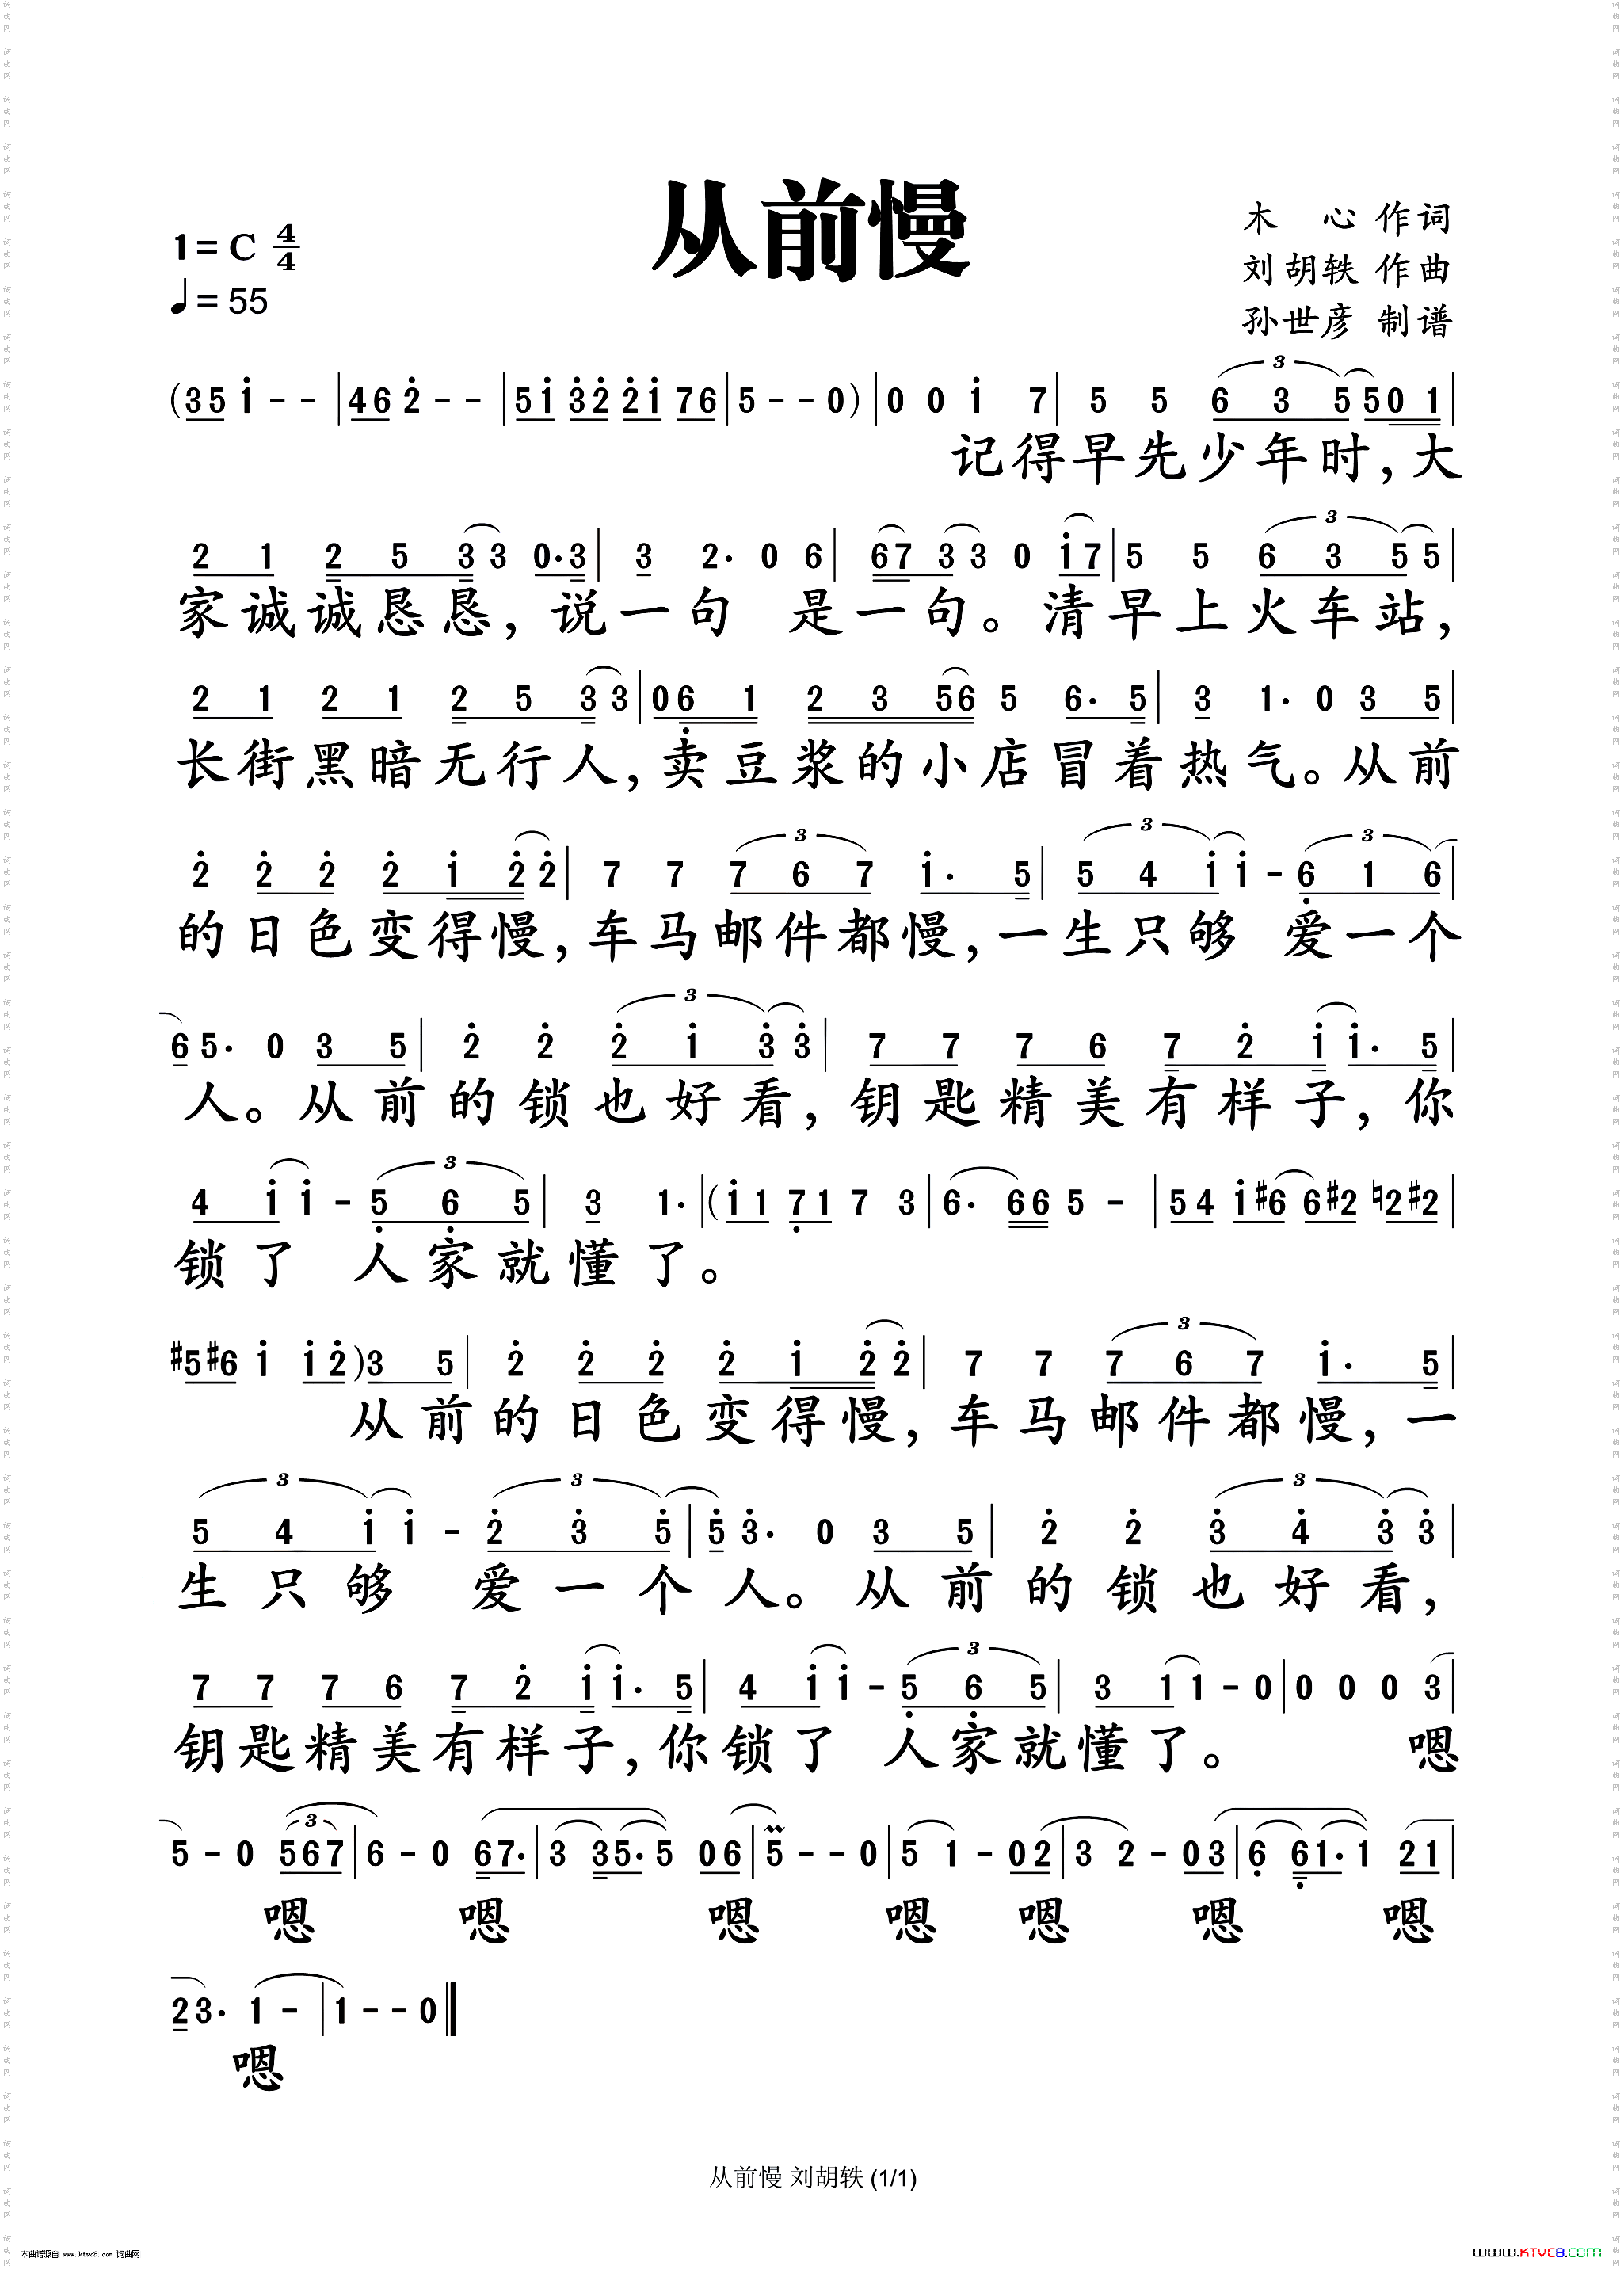 从前慢
1=C 4/4
♩=55
木 心 作词
刘胡轶 作曲
孙世彦 制谱
(35 i - - | 46 2̇ - - | 5i 3̇2̇ 2̇i 76 | 5 - - 0) | 0 0 i 7 | 5 5 6 3 5 5 0 1 |
记得早先少年时,大
2 1 2 5 3 3 0·3 | 3 2· 0 6 | 67 3 3 0 i7 | 5 5 6 3 5 5 |
家诚诚恳恳,说一句 是一句。清早上火车站,
2 1 2 1 2 5 3 3 | 0 6̣ 1 2 3 56 5 6· 5 | 3 1· 0 3 5 |
长街黑暗无行人,卖豆浆的小店冒着热气。从前
2̇ 2̇ 2̇ 2̇ i 2̇ 2̇ | 7 7 7 6 7 i· 5 | 5 4 i i - 6̣ 1 6 |
的日色变得慢,车马邮件都慢,一生只够 爱一个
6 5· 0 3 5 | 2̇ 2̇ 2̇ i 3̇ 3̇ | 7 7 7 6 7 2̇ i i· 5 |
人。从前的锁也好看,钥匙精美有样子,你
4 i i - 5̣ 6̣ 5 | 3 1· | (i1 7̣1 7 3 | 6· 66 5 - | 54 i#6 6#2 ♮2#2 |
锁了 人家就懂了。
#5#6 i i2̇) 3 5 | 2̇ 2̇ 2̇ 2̇ i 2̇ 2̇ | 7 7 7 6 7 i· 5 |
从前的日色变得慢,车马邮件都慢,一
5 4 i i - 2̇ 3̇ 5̇ | 5̇ 3̇· 0 3 5 | 2̇ 2̇ 3̇ 4̇ 3̇ 3̇ |
生只够 爱一个人。从前的锁也好看,
7 7 7 6 7 2̇ i i· 5 | 4 i i - 5̣ 6̣ 5 | 3 1 1 - 0 | 0 0 0 3 |
钥匙精美有样子,你锁了 人家就懂了。 嗯
5 - 0 567 | 6 - 0 67· | 3 35· 5 06 | 5 - - 0 | 5 1 - 02 | 3 2 - 03 | 6̣ 6̣1· 1 21 |
嗯 嗯 嗯 嗯 嗯 嗯 嗯
2 3· 1 - | 1 - - 0 ‖
嗯
从前慢 刘胡轶 (1/1)
本曲谱源自 www.ktvc8.com 词曲网
WWW.KTVC8.COM